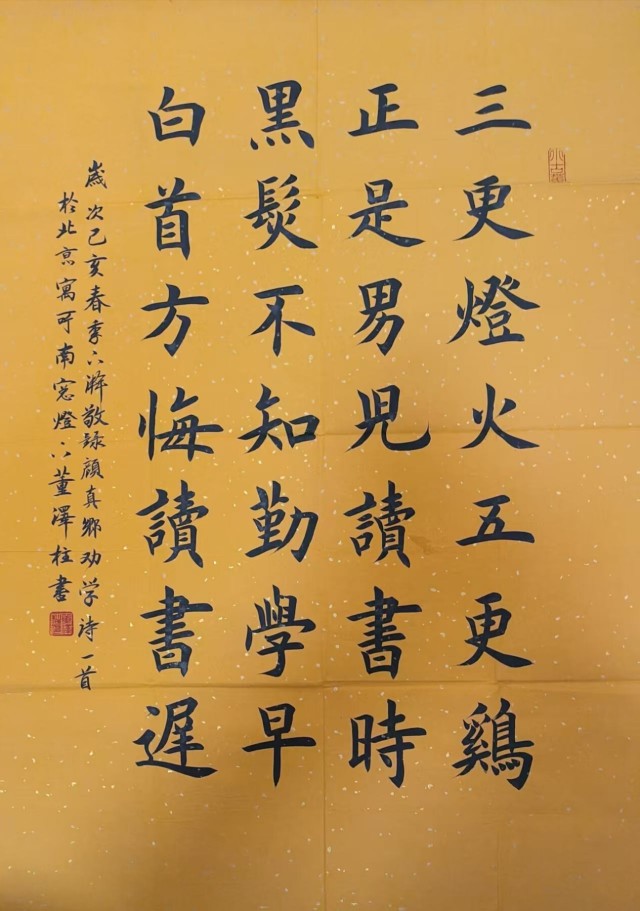 三更燈火五更鷄
正是男児讀書時
黒髮不知勤學早
白首方悔讀書遅
歲次己亥春季下澣敬録顔真卿劝学诗一首
於北京寓所南窓燈下董澤柱書